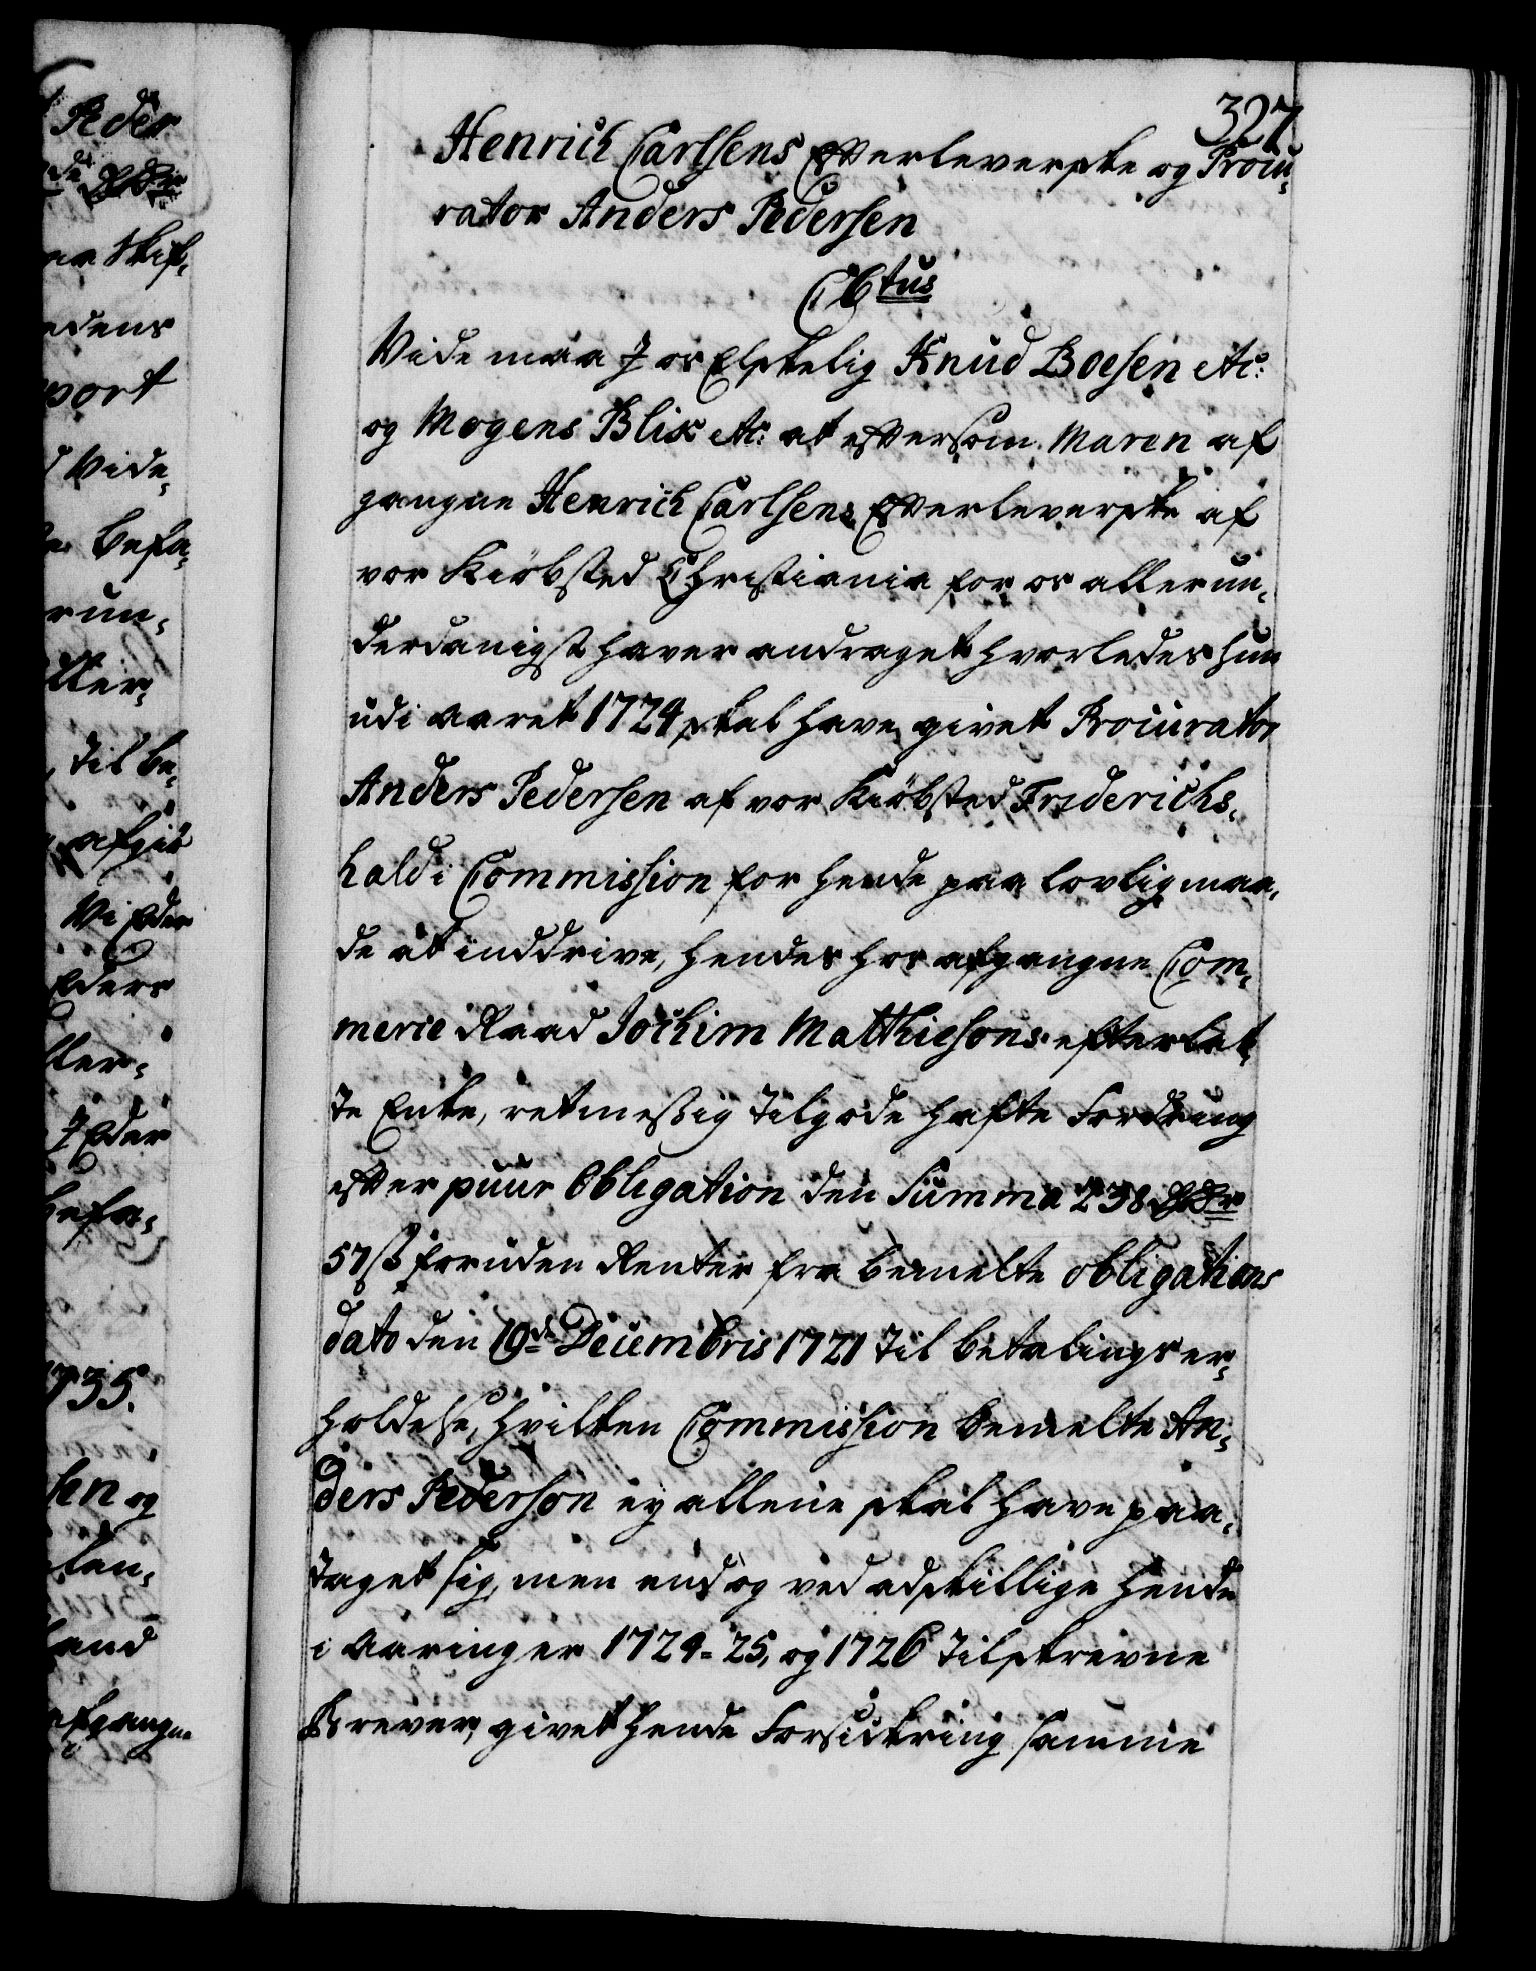 327
Henrich Carlsens Efterleverske og Procu-
rator Anders Pedersen
C6tus
Vide maa J os Elskelig Knud Boesen etc:
og Mogens Blix etc: at eftersom Maren af
gangne Henrich Carlsens Efterleverske af
vor Kiöbsted Christiania for os allerun-
derdanigst haver andraget hvorledes hun
udi aaret 1724 skal have givet Procurator
Anders Pedersen af vor Kiöbsted Friderichs-
hald i Commission for hende paa lovlig maa-
de at inddrive, hendes hos afgangne Com-
merce Raad Jochim Matthiesons efterlat-
te Enke, retmessig tilgode hafte Fordring
efter puur Obligation den Summa 238 Rdr
57 ß foruden Renter fra bemelte obligations
dato den 19de Decembris 1721 til betalings er-
holdelse, hvilken Commission bemelte An-
ders Pederson ey allene skal have paa-
taget sig, men endog ved adskillige hende
i Aaringer 1724-25, og 1726 tilskrevne
Brever, givet hende Forsickring samme
Peder
Rdr
skif-
edens
port
Vide
befa-
run-
ller-
til be-
afgit
Vi Eder
Eders
ller-
J Eder
befa-
1735.
sen og
len-
land
afgangne